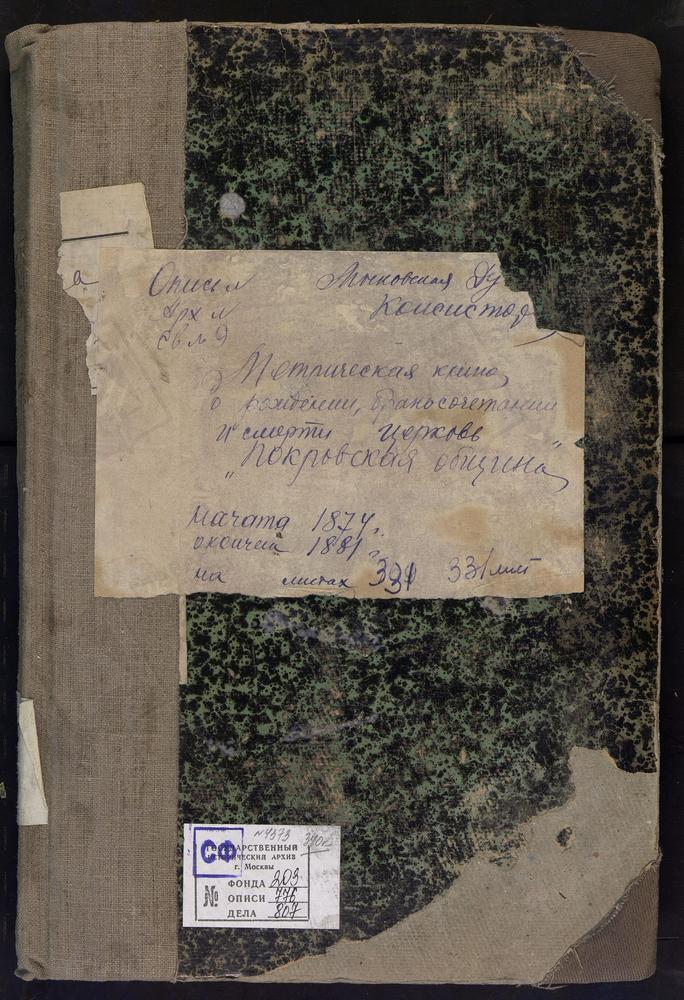 а
Опись № Московская Ду
Арх № Консистор
Св №
Метрическая книга
о рождении, бракосочетании
и смерти церковь
"Покровская община"
Начата 1874 г.
окончен 1881 г.
на листах 331 331 лист
№4373
390
СФ
ГОСУДАРСТВЕННЫЙ
ИСТОРИЧЕСКИЙ АРХИВ
г. Москвы
ФОНДА 203
№ ОПИСИ 776
ДЕЛА 807